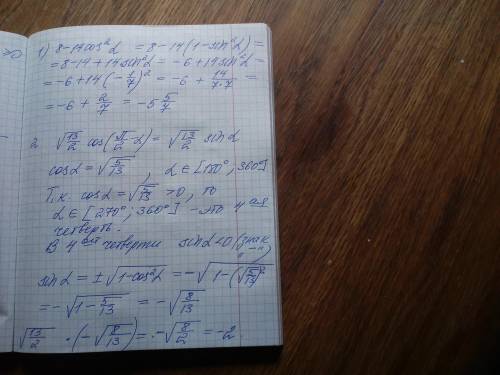 1) 8-14cos²α = 8-14(1-sin²α)=
=8-14+14sin²α = -6+14sin²α=
=-6+14(-1/7)² = -6 + 14/7·7 =
=-6 + 2/7 = -5 5/7
2 √13/2 cos(π/2-α)= √13/2 sinα
cosα=√5/13 , α∈[180°, 360°]
Т.к. cosα=√5/13 >0, то
α∈[270°, 360°] - это 4ая
четверть.
В 4ой четверти sinα<0 (знак
„-")
sinα=±√1-cos²α=-√1-(√5/13)²
=-√1-5/13 = -√8/13
√13/2 ·(-√8/13)=-√8/2 = -2